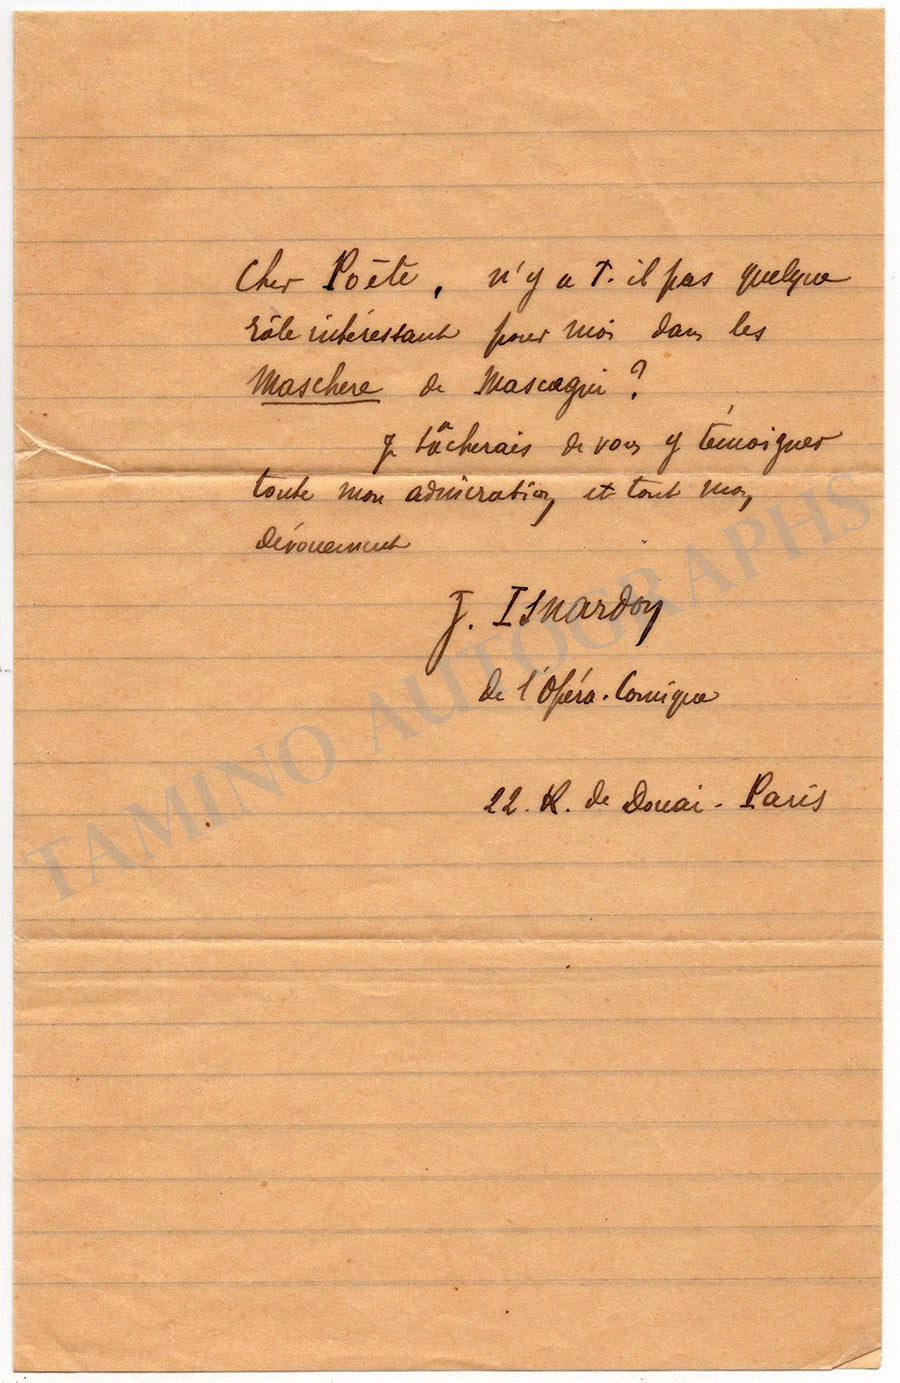 Cher Poëte, n'y a t-il pas quelque
rôle intéressant pour moi dans les
Maschere de Mascagni?
Je tâcherais de vous y témoigner
toute mon admiration et tout mon
dévouement
J. Isnardon
de l'Opéra-Comique
22. R. de Douai - Paris
TAMINO AUTOGRAPHS